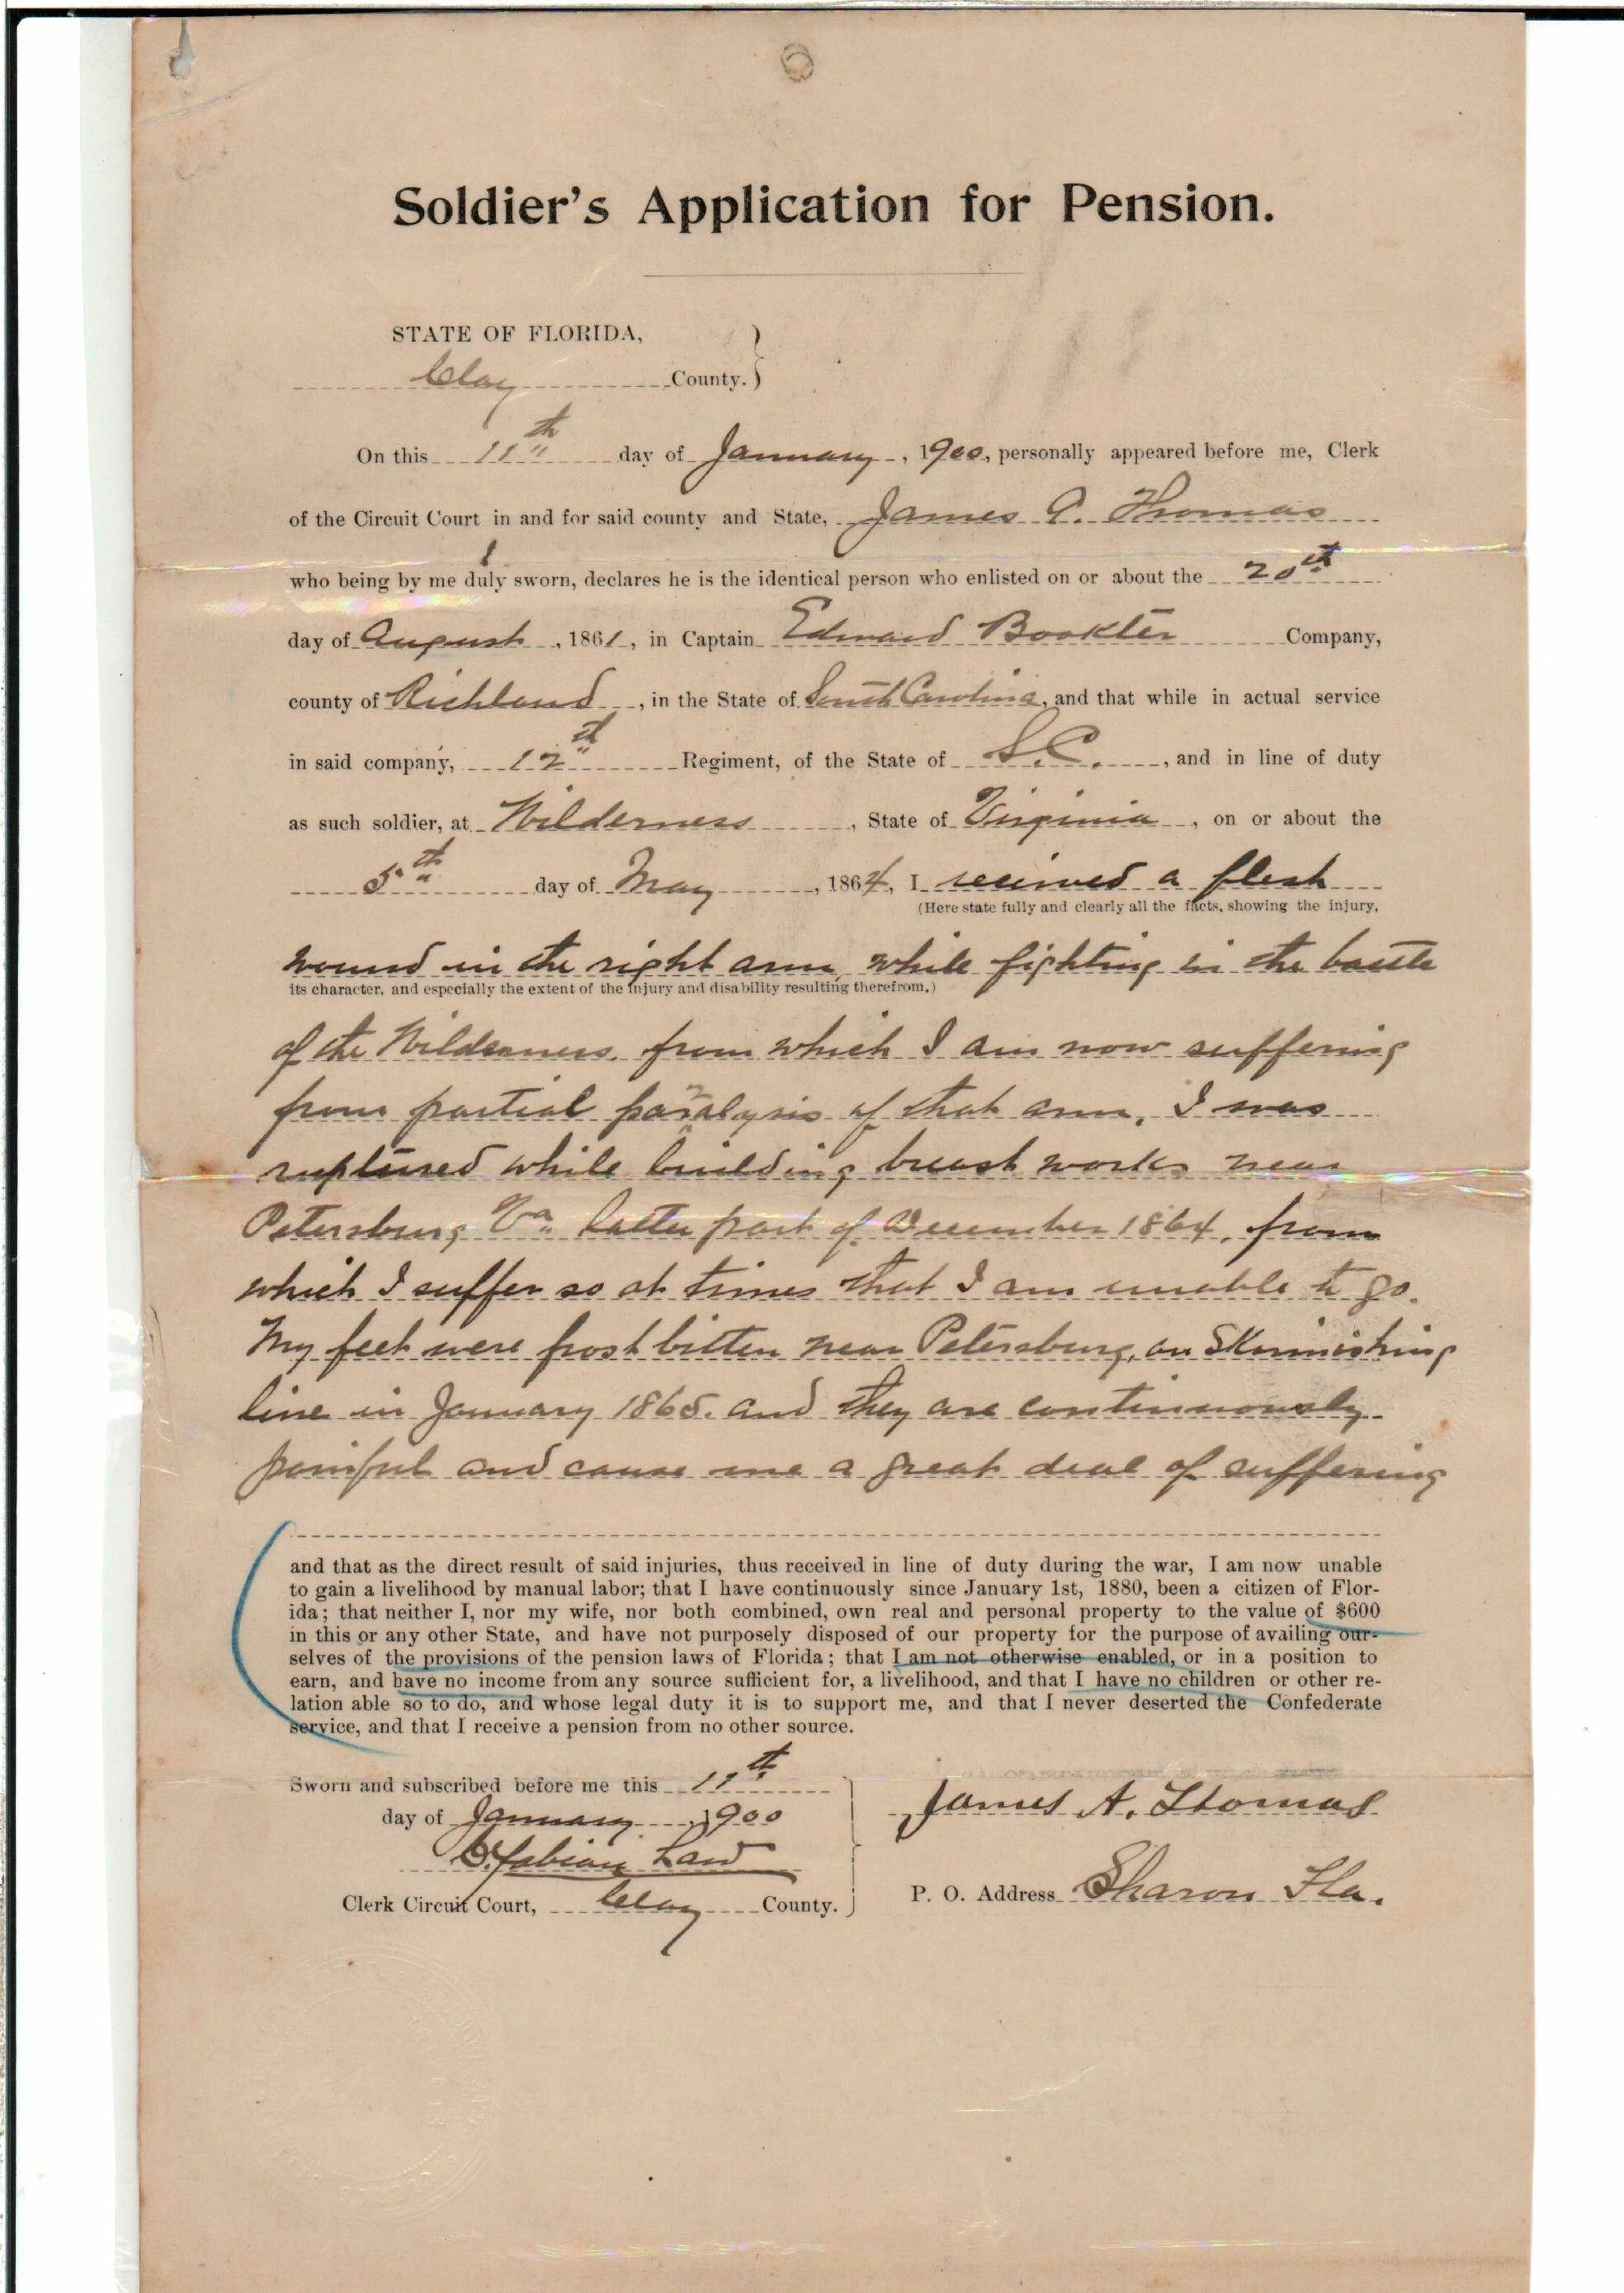 Soldier's Application for Pension.
STATE OF FLORIDA,
Clay County. }
On this 11th day of January, 1900, personally appeared before me, Clerk
of the Circuit Court in and for said county and State, James A. Thomas
who being by me duly sworn, declares he is the identical person who enlisted on or about the 20th
day of August, 1861, in Captain Edward Bookter Company,
county of Richland, in the State of South Carolina, and that while in actual service
in said company, 12th Regiment, of the State of S.C., and in line of duty
as such soldier, at Wilderness, State of Virginia, on or about the
5th day of May, 1864, I received a flesh
(Here state fully and clearly all the facts, showing the injury,
wound in the right arm, while fighting in the battle
its character, and especially the extent of the injury and disability resulting therefrom.)
of the Wilderness. from which I am now suffering
from partial paralysis of that arm, I was
ruptured while building breast works near
Petersburg Va. latter part of December 1864, from
which I suffer so at times that I am unable to go.
My feet were frost bitten near Petersburg, on Skirmishing
line in January 1865. and they are continuously
painful and cause me a great deal of suffering
and that as the direct result of said injuries, thus received in line of duty during the war, I am now unable
to gain a livelihood by manual labor; that I have continuously since January 1st, 1880, been a citizen of Flor-
ida; that neither I, nor my wife, nor both combined, own real and personal property to the value of $600
in this or any other State, and have not purposely disposed of our property for the purpose of availing our-
selves of the provisions of the pension laws of Florida; that I am not otherwise enabled, or in a position to
earn, and have no income from any source sufficient for, a livelihood, and that I have no children or other re-
lation able so to do, and whose legal duty it is to support me, and that I never deserted the Confederate
service, and that I receive a pension from no other source.
Sworn and subscribed before me this 11th
day of January, 1900
James A. Thomas
C. Fabian Law
Clerk Circuit Court, Clay County. }
P. O. Address Sharon Fla.